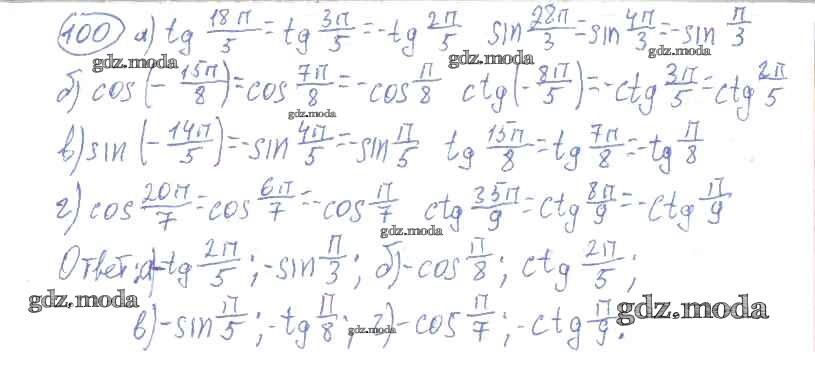 100 а) tg 18π/5 = tg 3π/5 = -tg 2π/5 sin 28π/3 = sin 4π/3 = -sin π/3
gdz.moda gdz.moda
б) cos(-15π/8) = cos 7π/8 = -cos π/8 ctg(-8π/5) = -ctg 3π/5 = ctg 2π/5
gdz.moda
в) sin(-14π/5) = -sin 4π/5 = -sin π/5 tg 15π/8 = tg 7π/8 = -tg π/8
г) cos 20π/7 = cos 6π/7 = -cos π/7 ctg 35π/9 = ctg 8π/9 = -ctg π/9
gdz.moda
Ответ: а) -tg 2π/5; -sin π/3; б) -cos π/8; ctg 2π/5;
gdz.moda
в) -sin π/5; -tg π/8; г) -cos π/7; -ctg π/9.
gdz.moda gdz.moda